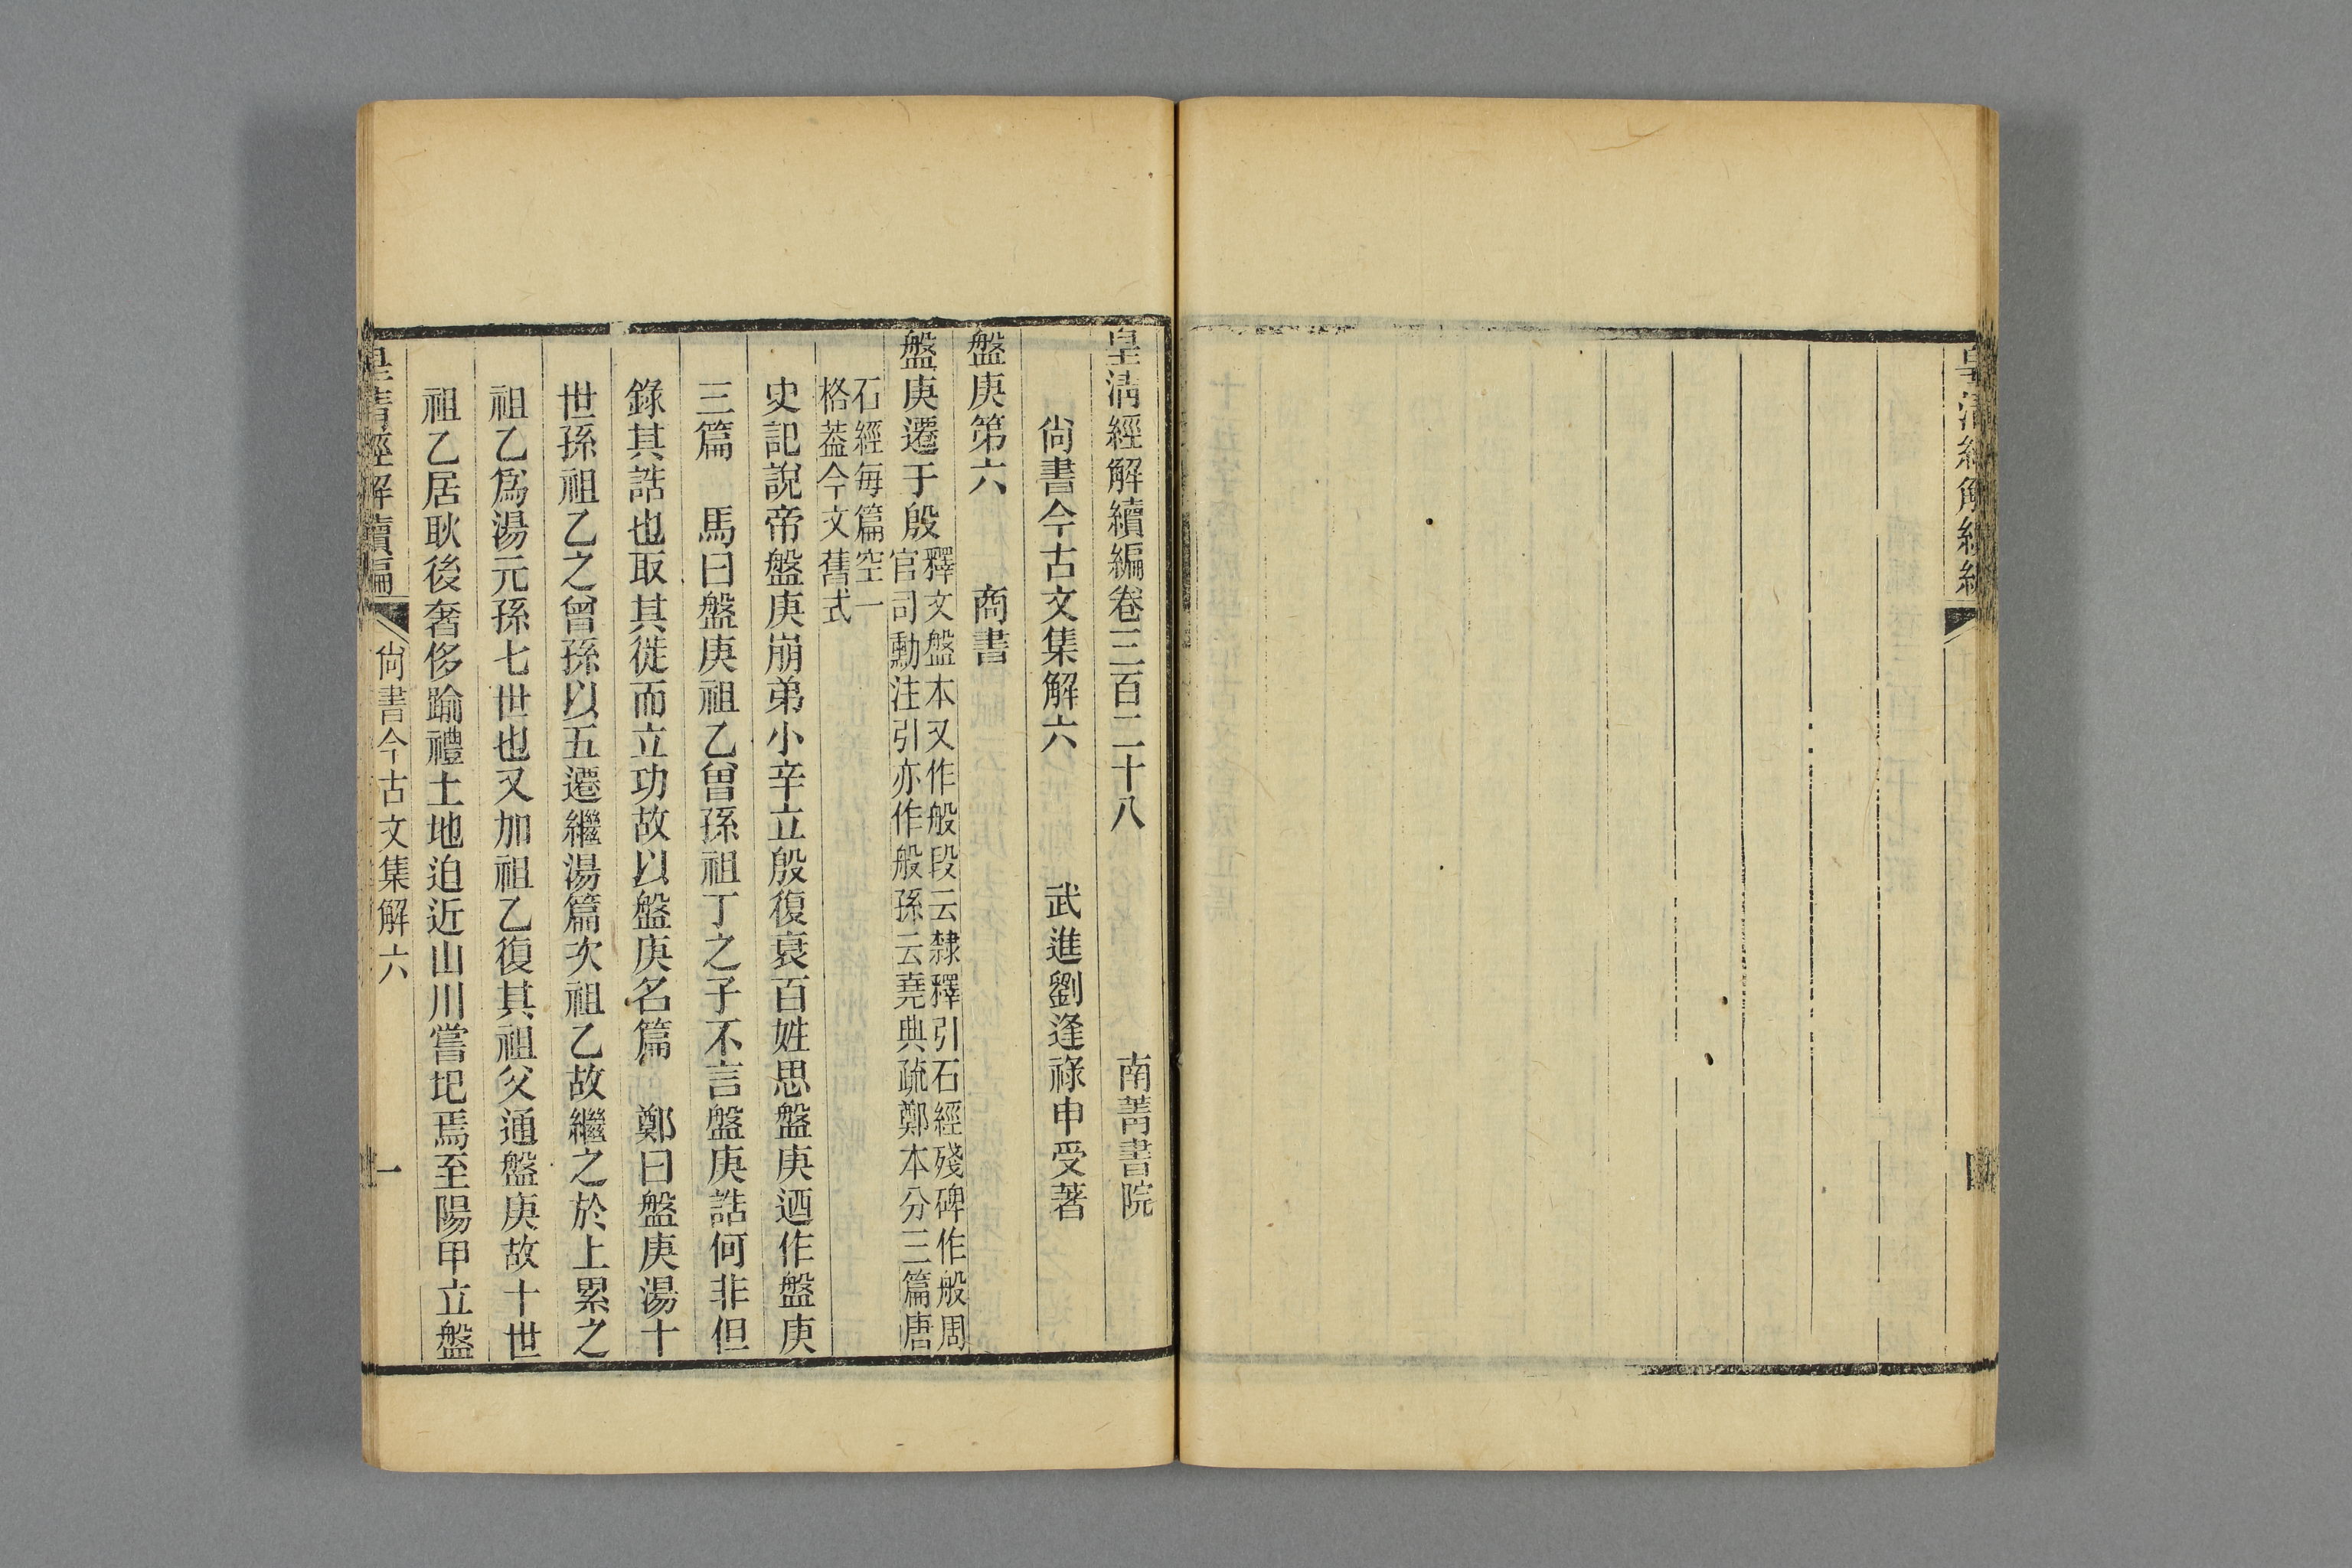 皇清經解續編
四
皇清經解續編卷三百二十八　南菁書院
尙書今古文集解六　武進劉逢祿申受著
盤庚第六　商書
盤庚遷于殷
釋文盤本又作般段云隸釋引石經殘碑作般周
官司勳注引亦作般孫云堯典疏鄭本分三篇唐
石經每篇空一
格葢今文舊式
史記說帝盤庚崩弟小辛立殷復衰百姓思盤庚迺作盤庚
三篇　馬曰盤庚祖乙曾孫祖丁之子不言盤庚誥何非但
錄其誥也取其徙而立功故以盤庚名篇　鄭曰盤庚湯十
世孫祖乙之曾孫以五遷繼湯篇次祖乙故繼之於上累之
祖乙爲湯元孫七世也又加祖乙復其祖父通盤庚故十世
祖乙居耿後奢侈踰禮土地迫近山川嘗圯焉至陽甲立盤
皇清經解續編　尙書今古文集解六　一